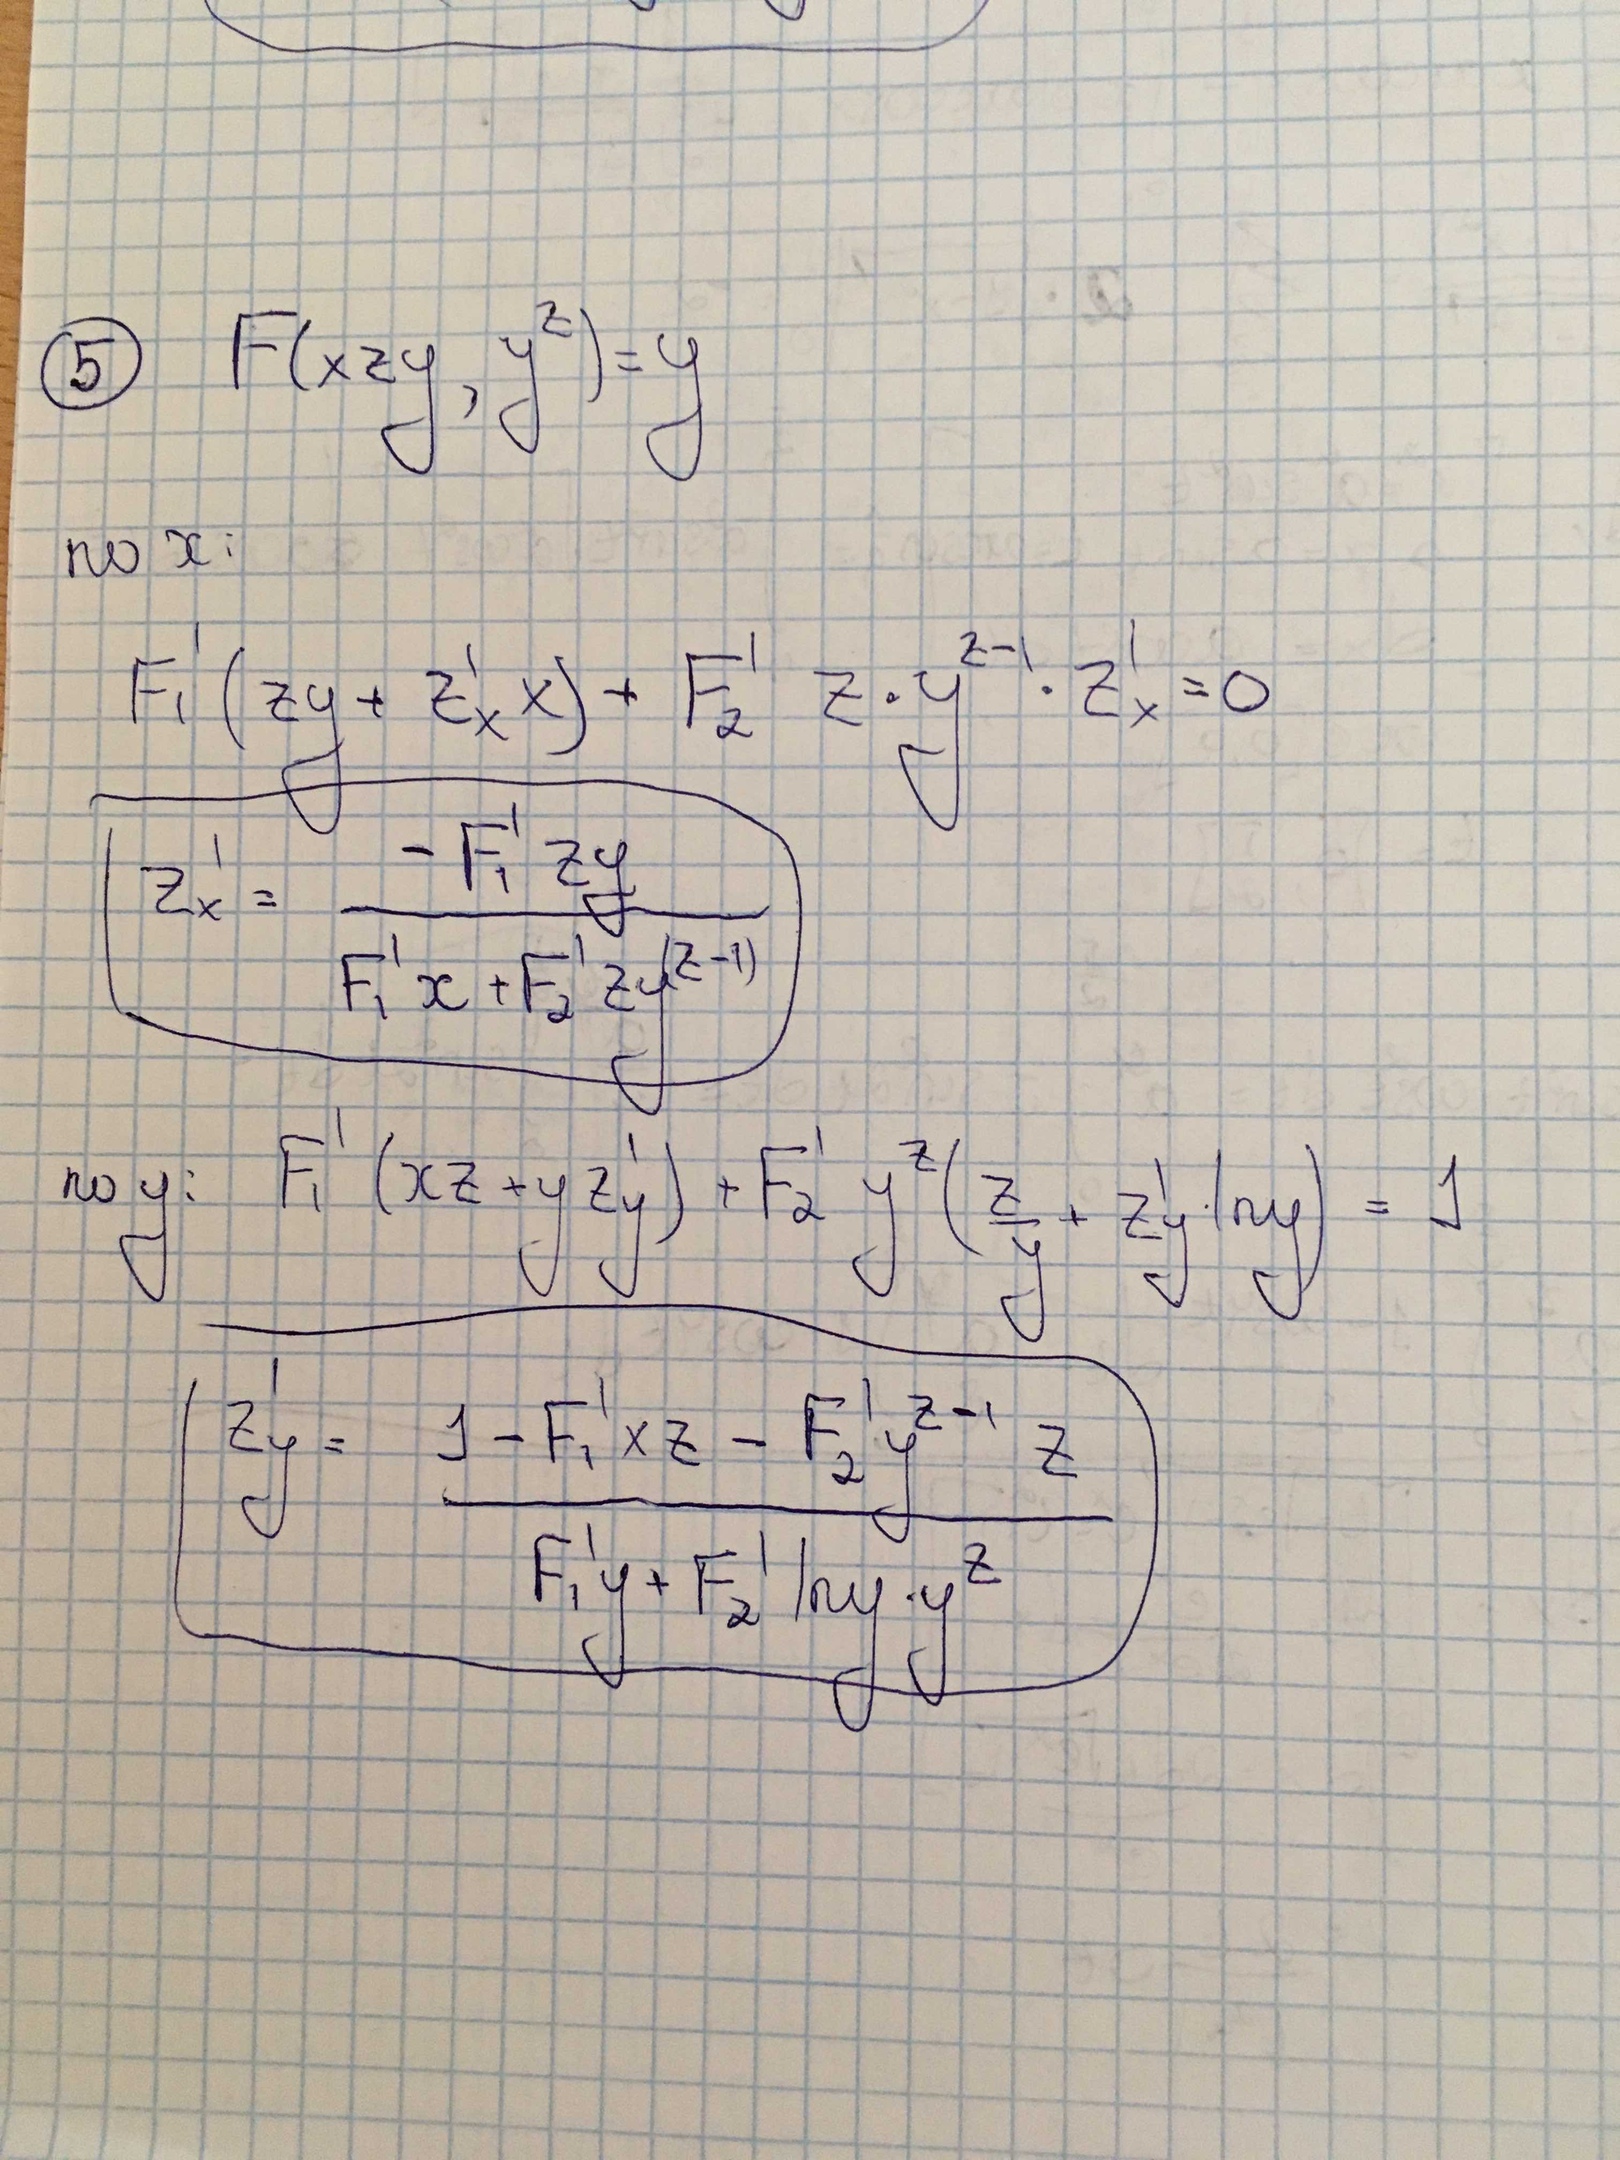 ⑤ F(xzy, y^z) = y
по x:
F₁'(zy + z'ₓ x) + F₂' z · y^(z-1) · z'ₓ = 0
z'ₓ = (-F₁' zy) / (F₁' x + F₂' zy^(z-1))
по y: F₁'(xz + y z'_y) + F₂' y^z (z/y + z'_y · ln y) = 1
z'_y = (1 - F₁' xz - F₂' y^(z-1) z) / (F₁' y + F₂' ln y · y^z)